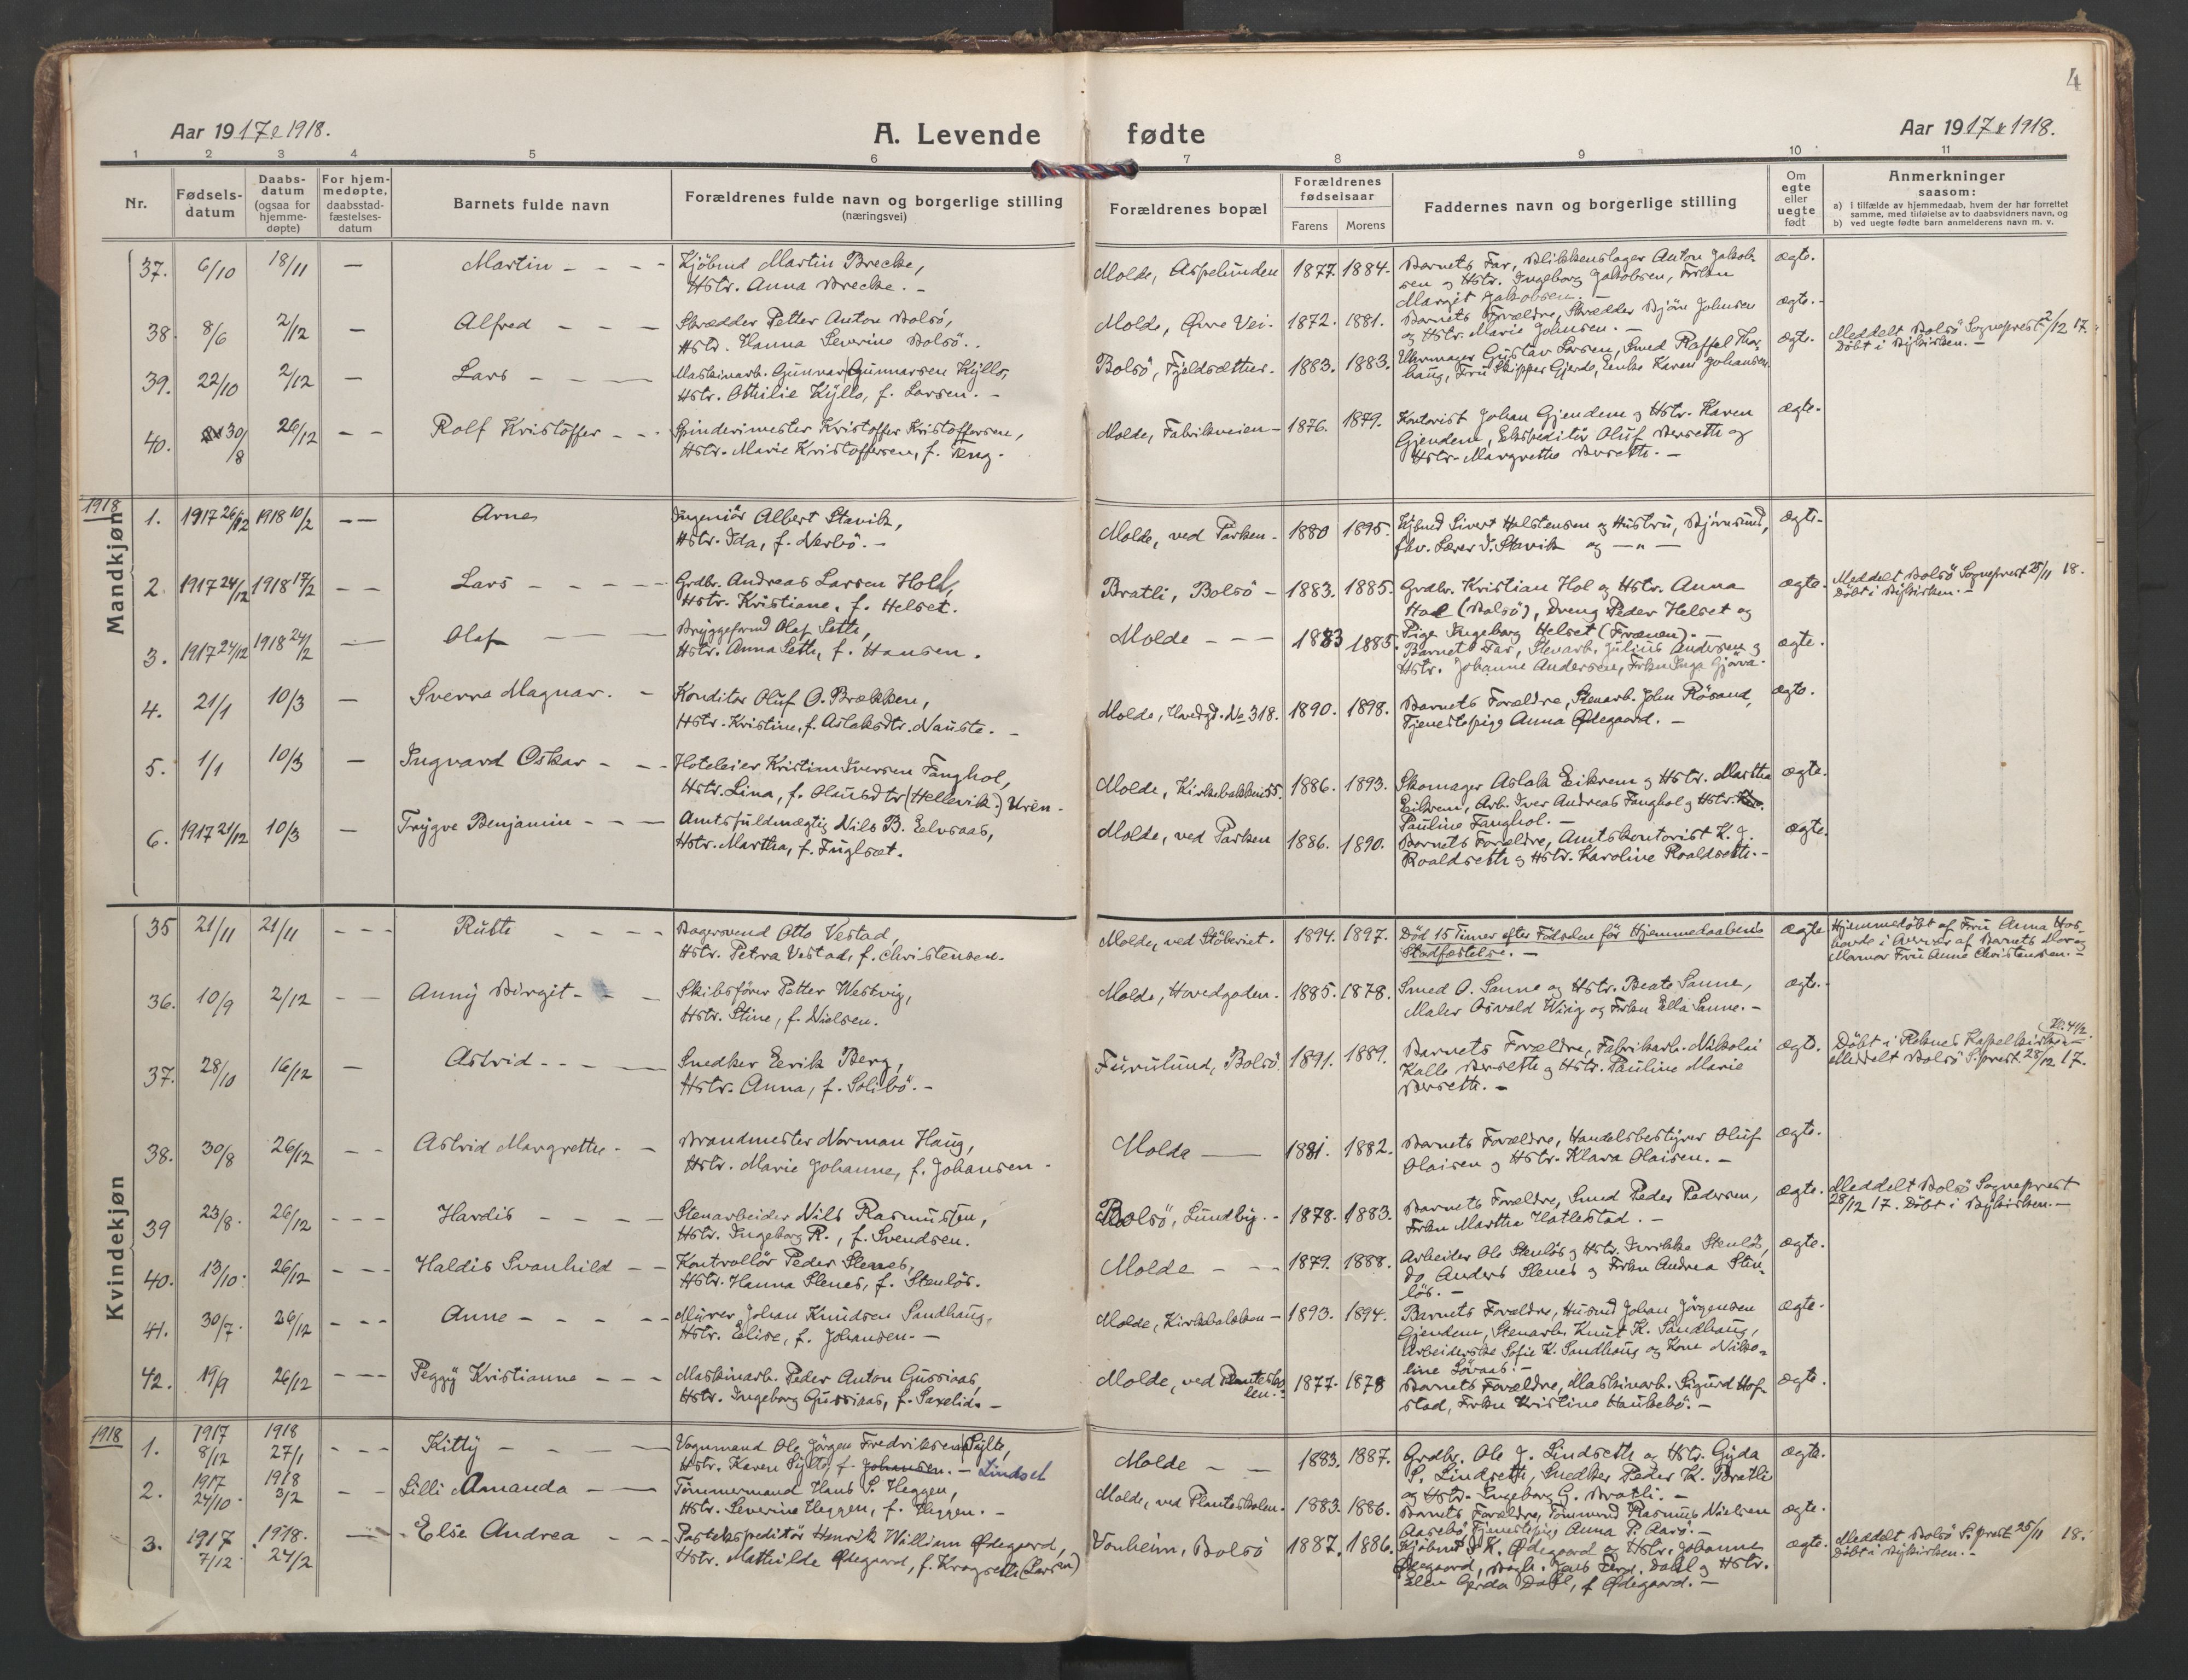 4
Aar 1917 & 1918.
A. Levende fødte
Aar 1917 & 1918.
1 2 3 4 5 6 7 8 9 10 11
Nr.
Fødsels-datum
Daabs-datum (ogsaa for hjemme-døpte)
For hjem-medøpte, daabsstad-fæstelses-datum
Barnets fulde navn
Forældrenes fulde navn og borgerlige stilling
(næringsvei)
Forældrenes bopæl
Forældrenes fødselsaar
Farens Morens
Faddernes navn og borgerlige stilling
Om egte eller uegte født
Anmerkninger
saasom:
a) I tilfælde av hjemmedaab, hvem der har forrettet
samme, med tilføielse av to daabsvidners navn, og
b) ved uegte fødte barn anmelderens navn m. v.
Mandkjøn
37. 6/10 18/11 — Martin - - - - Kjöbmd Martin Brecke,
Hstr. Anna Brecke. -
Molde, Aspelunden 1877. 1884. Barnets Far, Blikkenslager Anton Jakob-
sen og Hstr. Ingeborg Jakobsen, Frkn
Margit Jakobsen. - ægte.
38. 8/6 2/12 — Alfred - - - Skrædder Petter Anton Bolsö,
Hstr. Hanna Severine Bolsö.
Molde, Øvre Vei. 1872. 1881. Barnets Forældre, Skrædder Björn Johnsen
og Hstr. Marie Johnsen. - ægte. -
39. 22/10 2/12 — Lars - - — Maskinarb. Gunnar Gunnarsen Kyllo,
Hstr. Othilie Kyllo, f. Larsen. -
Bolsö, Fjeldsætter. 1883. 1883. Uhrmager Gustav Larsen, Smed Raffel Thor-
haug, Fru Skipper Gjerde, Enke Karen Johansen. ægte.
Meddelt Bolsö Sogneprest 2/12 17.
Döbt i Bykirken. -
40. 30/8 26/12 - - Rolf Kristoffer - - Spinderimester Kristoffer Kristoffersen,
Hstr. Marie Kristoffersen, f. Teng.
Molde, Fabrikveien - 1876. 1879. Kontorist Johan Gjendem og Hstr. Karen
Gjendem, Ekspeditör Oluf Berseth og
Hstr. Margrethe Berseth. - ægte.
1918
1. 1917 26/12 1918 10/2 - - Arne
Ingeniör Albert Stavik,
Hstr. Ida, f. Nerbö. -
Molde, ved Parken - 1880 1895. Kjbmd Sivert Halstensen og Hustru, Björnsund,
fhv. Lærer J. Stavik og —„— ægte.
2. 1917 24/12 1918 17/2 - - Lars - - - - Grdbr. Andreas Larsen Hol,
Hstr. Kristiane, f. Helset.
Bratli, Bolsö - 1883. 1885. Grdbr. Kristian Hol og Hstr. Anna
Hol (Bolsö), Dreng Peder Helset og
Pige Ingeborg Helset (Frænen). - ægte.
Meddelt Bolsö Sogneprest 25/11 18.
Döbt i Bykirken. -
3. 1917 24/12 1918 24/2 — Olaf — Bryggeformd Olaf Seth,
Hstr. Anna Seth, f. Hansen.
Molde - - - 1883 1885. Barnets Far, Stenarb. Julius Andersen og
Hstr. Johanne Andersen, Frkn Inga Gjörva. ægte.
4. 21/1 10/3 — Sverre Magnar. - Konditor Oluf O. Brækken,
Hstr. Kristine, f. Aslaksdtr. Nauste. -
Molde, Hovedgd. No 318. 1890. 1898. Barnets Forældre, Stenarb. John Rösand,
Tjenestepige Anna Ødegaard. - ægte.
5. 1/1 10/3 — Ingvard Oskar - - - Hoteleier Kristian Iversen Fanghol,
Hstr. Lina, f. Olausdtr (Hellevik) Uren.
Molde, Kirkebakken 55. 1886. 1893. Skomager Aslak Eikrem og Hstr. Martha
Eikrem, Arb. Iver Andreas Fanghol og Hstr.
Pauline Fanghol. - ægte.
6. 1917 21/12 10/3 — Trygve Benjamin - - - Amtsfuldmægtig Nils B. Eelvsaas,
Hstr. Martha, f. Fuglset.
Molde, ved Parken 1886. 1890. Barnets Forældre, Amtskontorist K. J.
Roaldseth og Hstr. Karoline Roaldseth. - ægte.
Kvindekjøn
35 21/11 21/11 - - - Ruth - - - - Bagersvend Otto Vestad,
Hstr. Petra Vestad, f. Christensen.
Molde, ved Stöberiet. 1894. 1897. Död 15 Timer efter Födselen för Hjemmedaabens
Stadfæstelse. - ægte
Hjemmedöbt af Fru Anna Hos-
i Nærvær af Barnets Mor og
Mormor Fru Anne Christensen. -
36. 10/9 2/12 - - Anny Birgit - - Skibsförer Petter Westvig,
Hstr. Stine, f. Nielsen.
Molde, Hovedgaden. 1885. 1878. Smed O. Sanne og Hstr. Beate Sanne,
Maler Osvald Wiig og Frkn Ella Sanne. - ægte.
37. 28/10 16/12 — Astrid - - - Snedker Eerik Berg,
Hstr. Anna, f. Solsbö. -
Furulund, Bolsö. 1891. 1889. Barnets Forældre, Fabrikarb. Nikolai
Kalle Berseth og Hstr. Pauline Marie
Berseth. - ægte.
Döbt i Reknes Kapel Kl. 4 1/2
Meddelt Bolsö S.prest 28/12 17.
38. 30/8 26/12 - - Astrid Margrethe - - Brandmester Norman Haug,
Hstr. Marie Johanne, f. Johansen -
Molde — 1881. 1882. Barnets Forældre, Handelsbestyrer Oluf
Olaisen og Hstr. Klara Olaisen. - ægte.
39 23/8. 26/12 - - - Hardis - - - - Stenarbeider Nils Rasmussen,
Hstr. Ingeborg R., f. Svendsen.
Bolsö, Lundby. - 1878. 1883. Barnets Forældre, Smed Peder Pedersen,
Frkn Martha Hatlestad. - ægte.
Meddelt Bolsö Sogneprest
28/12 17. Döbt i Bykirken. -
40. 13/10. 26/12 - - - Haldis Svanhild - - Kontrollör Peder Slenes,
Hstr. Hanna Slenes, f. Stenlös.
Molde - - - 1879. 1888. Arbeider Ole Stenlös og Hstr. Stenlös,
Do. Anders Slenes og Frkn Andrea Sten-
lös. - ægte.
41. 30/7. 26/12 - - - Anne - - - - - Murer Johan Knudsen Sandhaug,
Hstr. Elise, f. Johansen. -
Molde, Kirkebakken - 1893. 1894. Barnets Forældre, Husmd Johan Jörgensen
Gjendem, Stenarb. Knut K. Sandhaug,
Arbeiderske Sofie K. Sandhaug og Kone Niko-
line Löraas. - ægte.
42. 19/9 26/12 - - - Peggy Kristianne - - - Maskinarb. Peder Anton Gussiaas,
Hstr. Ingeborg Gussiaas, f. Saxelid. -
Molde, ved Plantesko-
len. - 1877. 1878 Barnets Forældre, Maskinarb. Sigurd Hof-
stad, Frkn Kristine Haukebö. - ægte.
1918
1. 1917 8/12 1918 27/1 - - - Kitty - - - - Vognmand Ole Jörgen Fredriksen Sylte,
Hstr. Karen Sylte, f. Johansen. - Lindset
Molde - - 1883. 1887. Grdbr. Ole J. Lindseth og Hstr. Gyda
P. Lindseth, Snedker Peder K. Bratli
og Hstr. Ingeborg G. Bratli. - ægte.
2. 1917 24/10. 1918 3/2 - - Lilli Amanda - — Tömmermand Hans P. Heggen,
Hstr. Severine Heggen, f. Heggen. -
Molde, ved Planteskolen. 1883. 1886. Barnets Forældre, Tömmermd Rasmus Nielsen
Aasebö, Tjenestepige Anna P. Aarö. - ægte.
3. 1917 7/12. 1918. 24/2 — Else Andrea - - - Postekspeditör Henrik William Ødegaard,
Hstr. Mathilde Ødegaard, f. Kragseth (Larsen)
Vonheim, Bolsö 1887. 1886. Kjöbmd J. K. Ødegaard og Hstr. Johanne
Ødegaard, Bagb. Jens Ferd. Dahl og Hstr.
Ellen Gerda Dahl, f. Ødegaard. - ægte.
Meddelt Bolsö S.prest 25/11 18.
Döbt i Bykirken. -